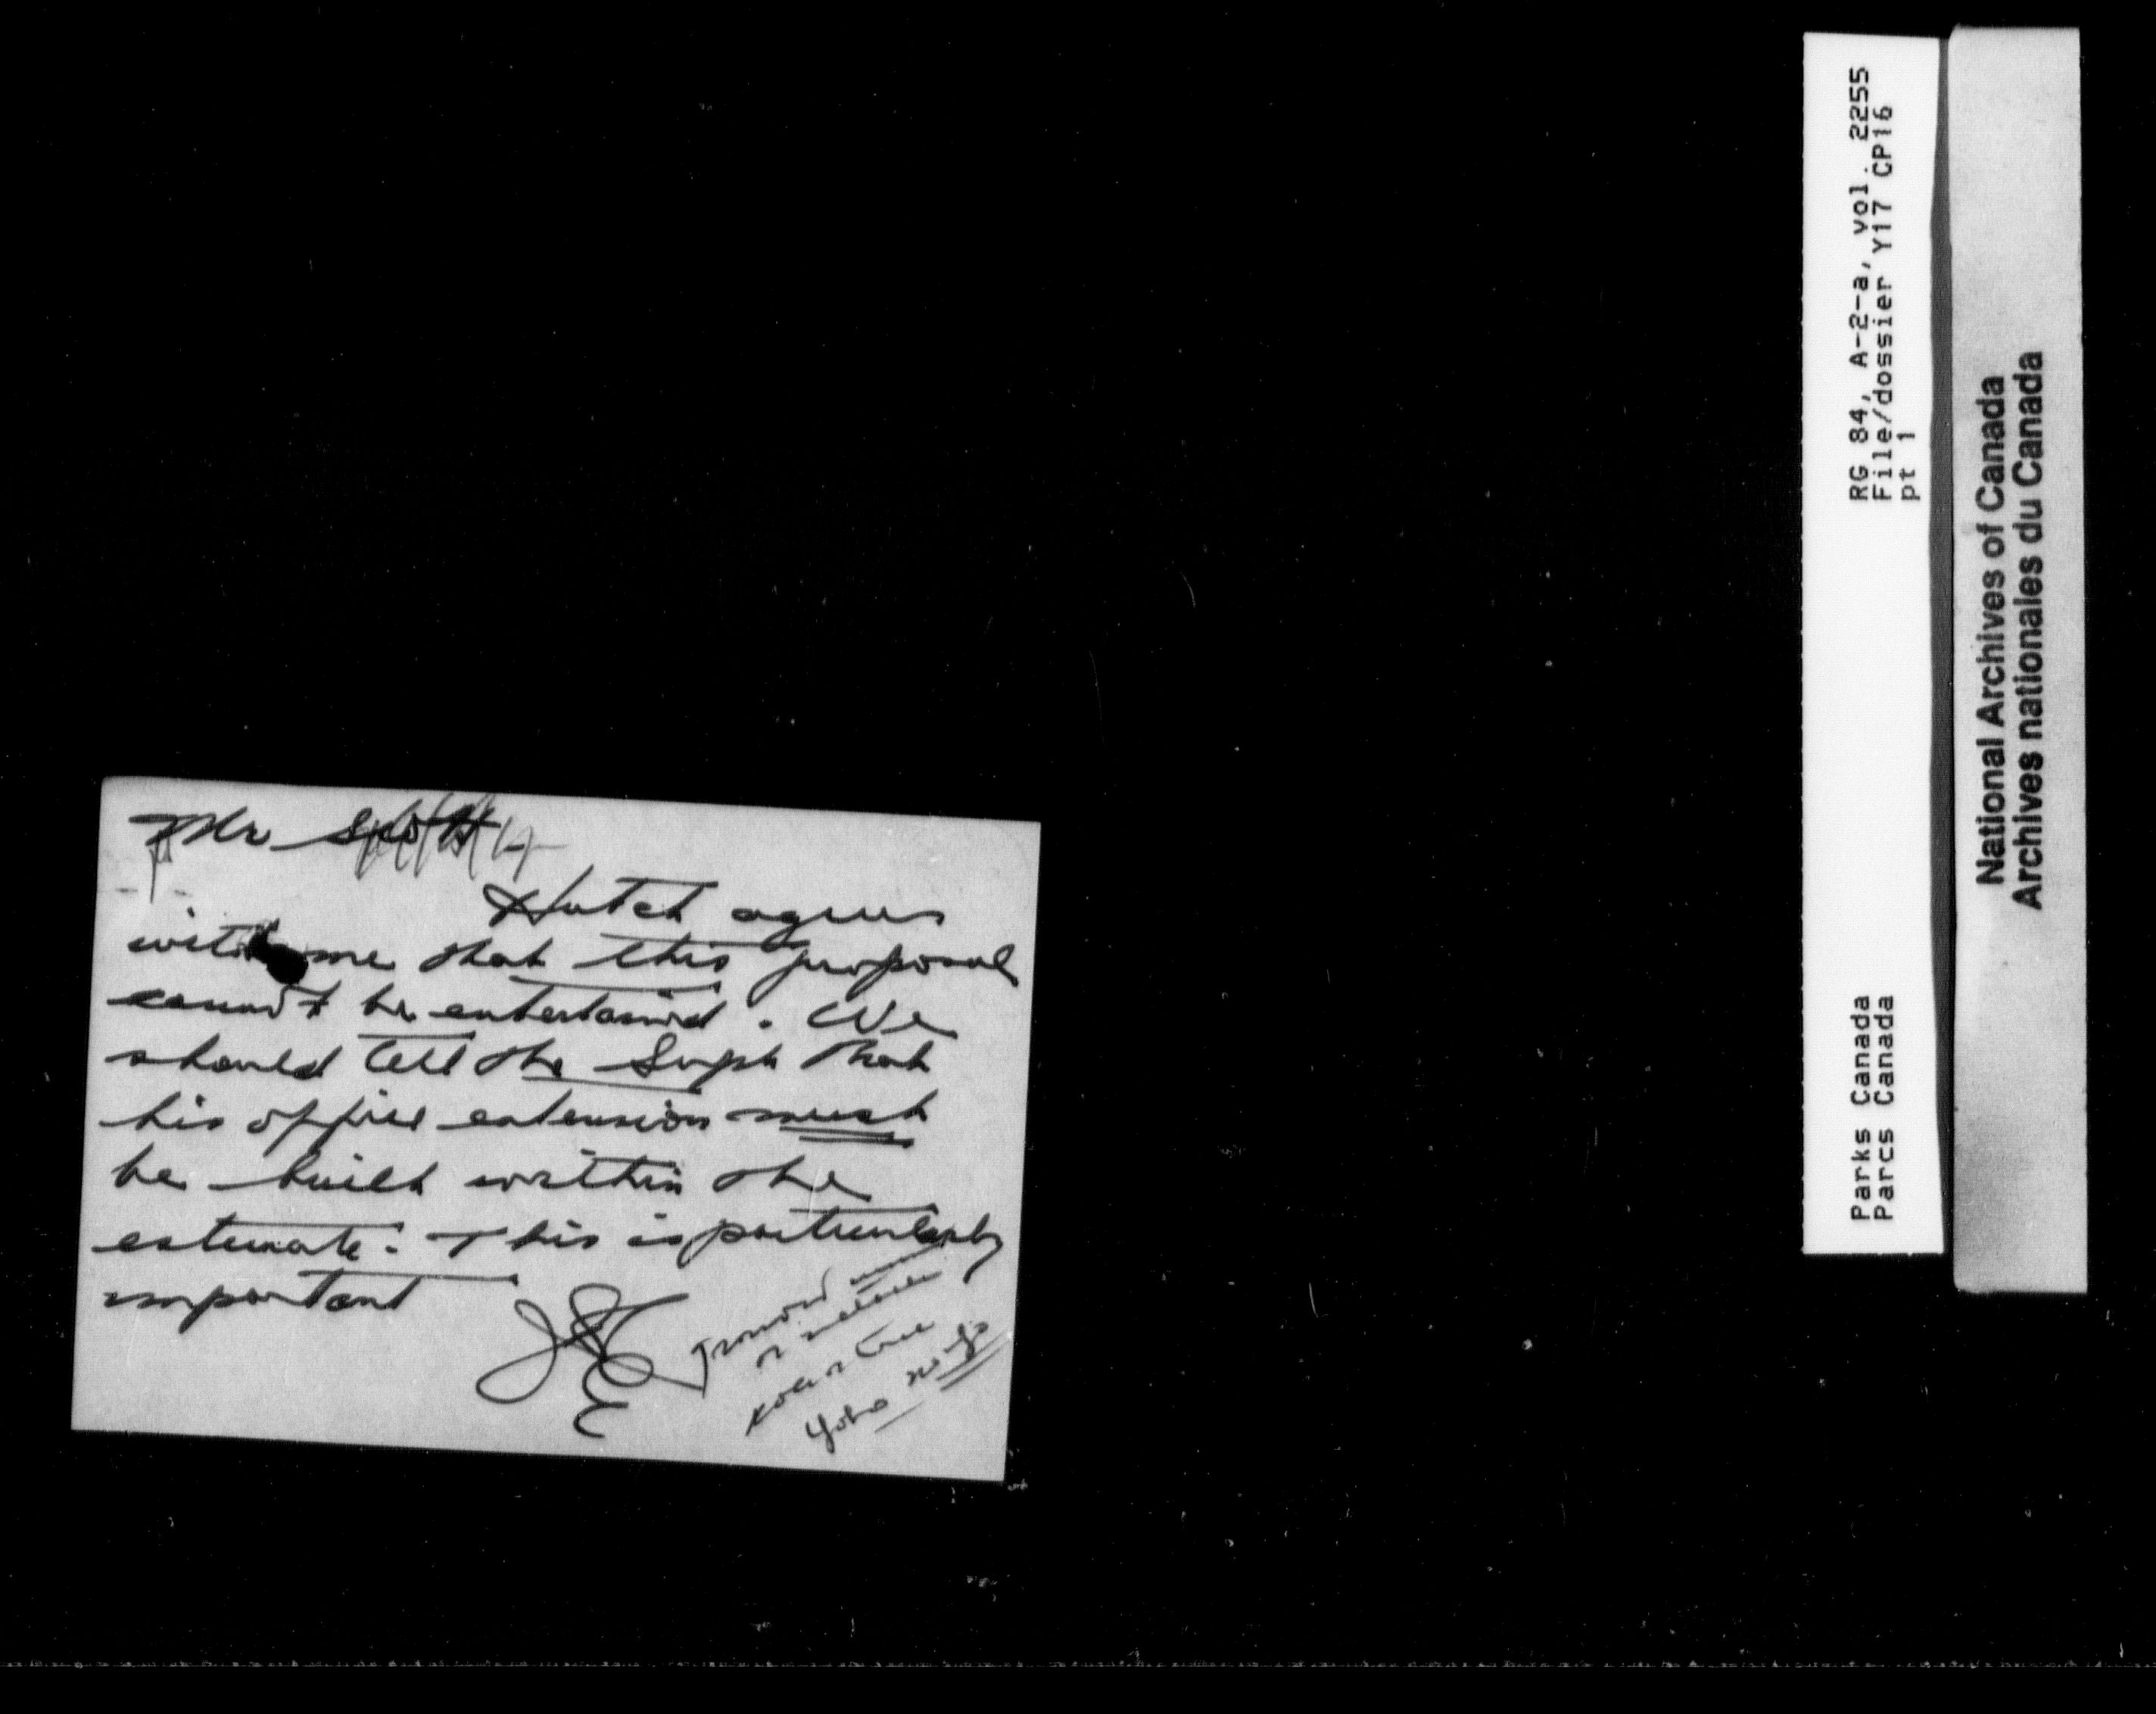 Mr Scott
Hutch agrees
with me that this proposal
cannot be entertained. We
should tell the Supt that
his office extension must
be built within the
estimate. This is particularly
important
RG 84, A-2-a, vol. 2255
File/dossier Y17 CP16
pt 1
Parks Canada
Parcs Canada
National Archives of Canada
Archives nationales du Canada